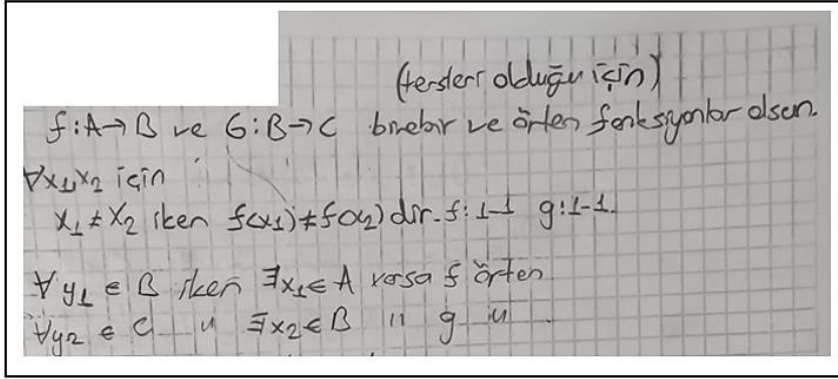 (tersleri olduğu için)
f:A→B ve G:B→C birebir ve örten fonksiyonlar olsun.
∀x₁,x₂ için
x₁≠x₂ iken f(x₁)≠f(x₂)dir. f:1-1 g:1-1.
∀y₁∈B iken ∃x₁∈A varsa f örten
∀y₂∈C " ∃x₂∈B " g " .